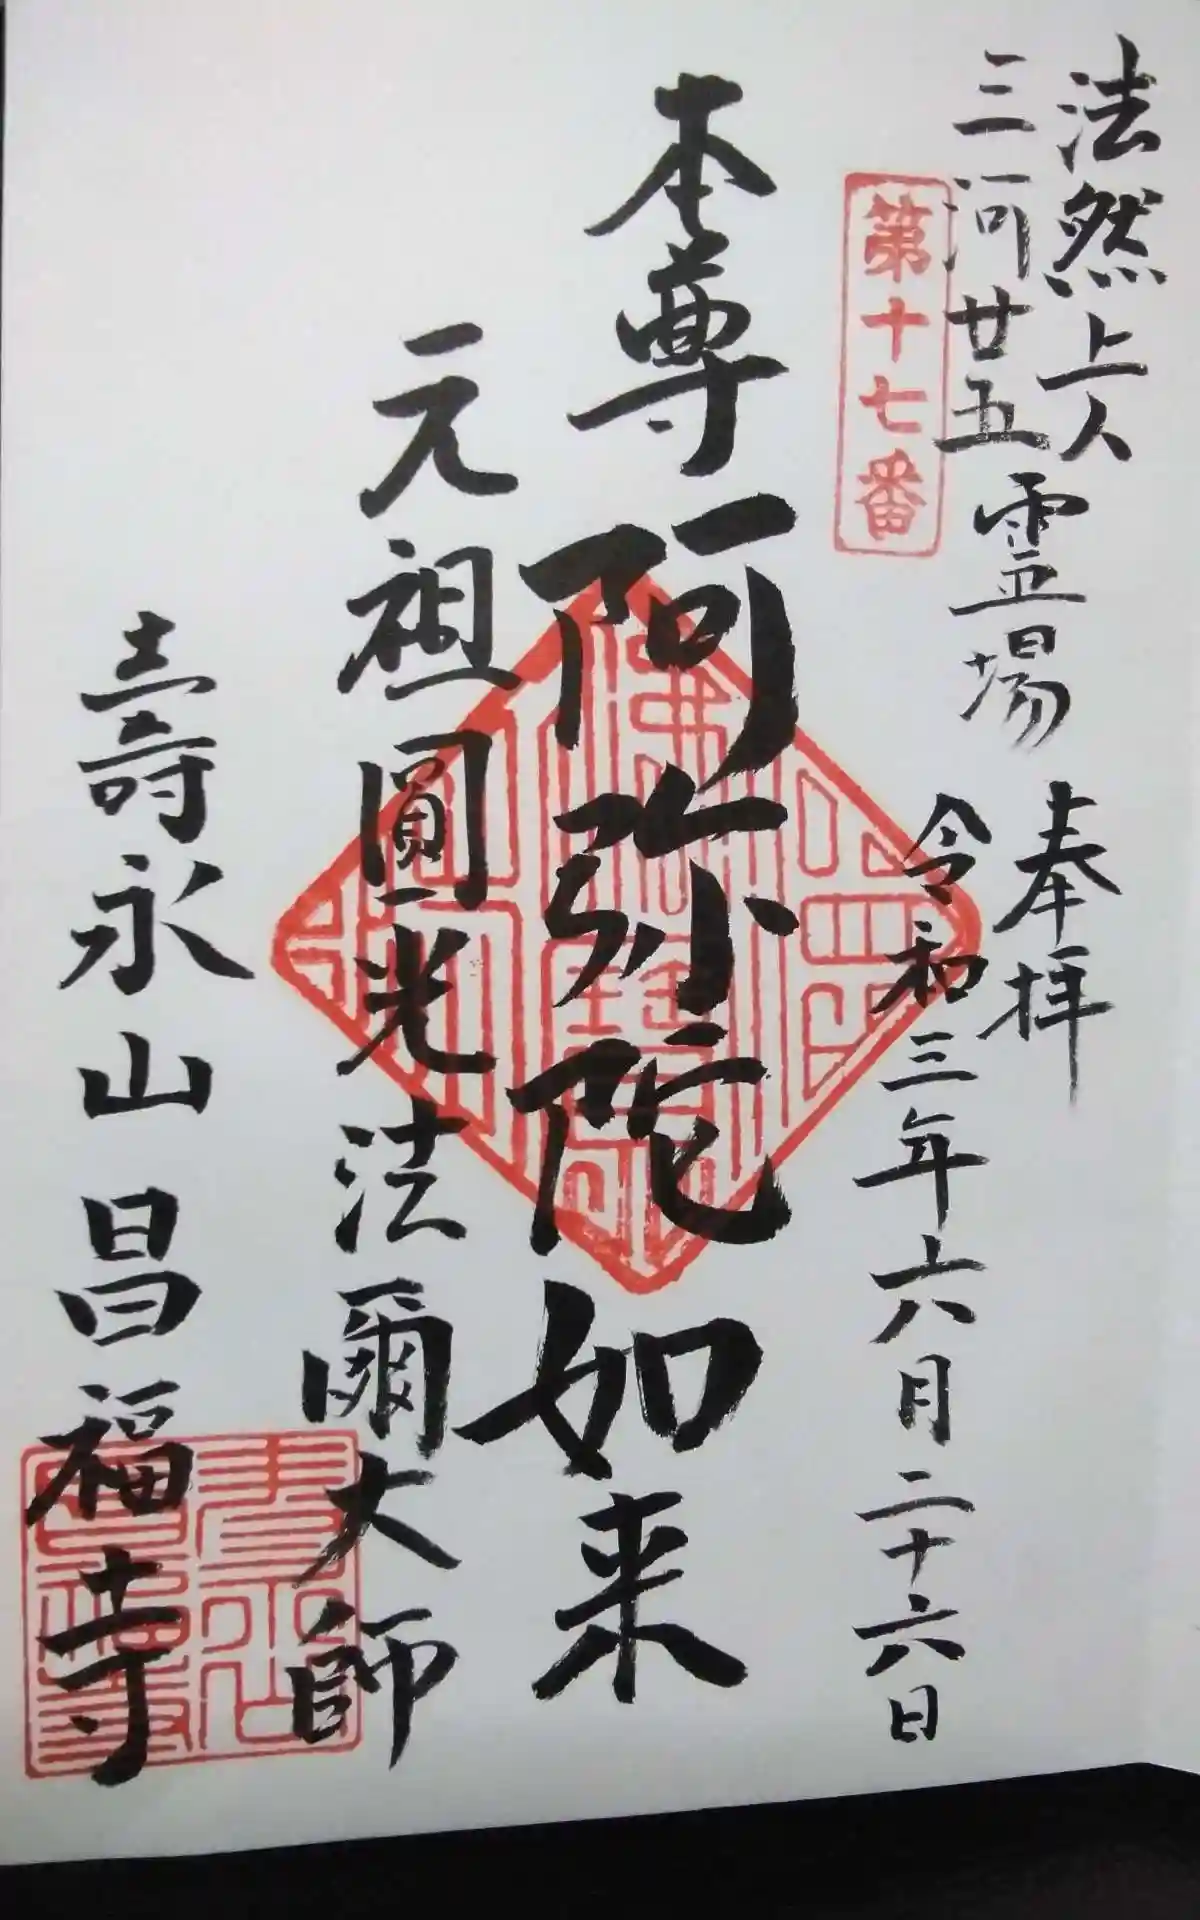 法然上人
三河廿五霊場
第十七番
奉拝
令和三年六月二十六日
本尊阿弥陀如来
元祖圓光法爾大師
壽永山昌福寺
佛法僧寶
壽永山
昌福寺